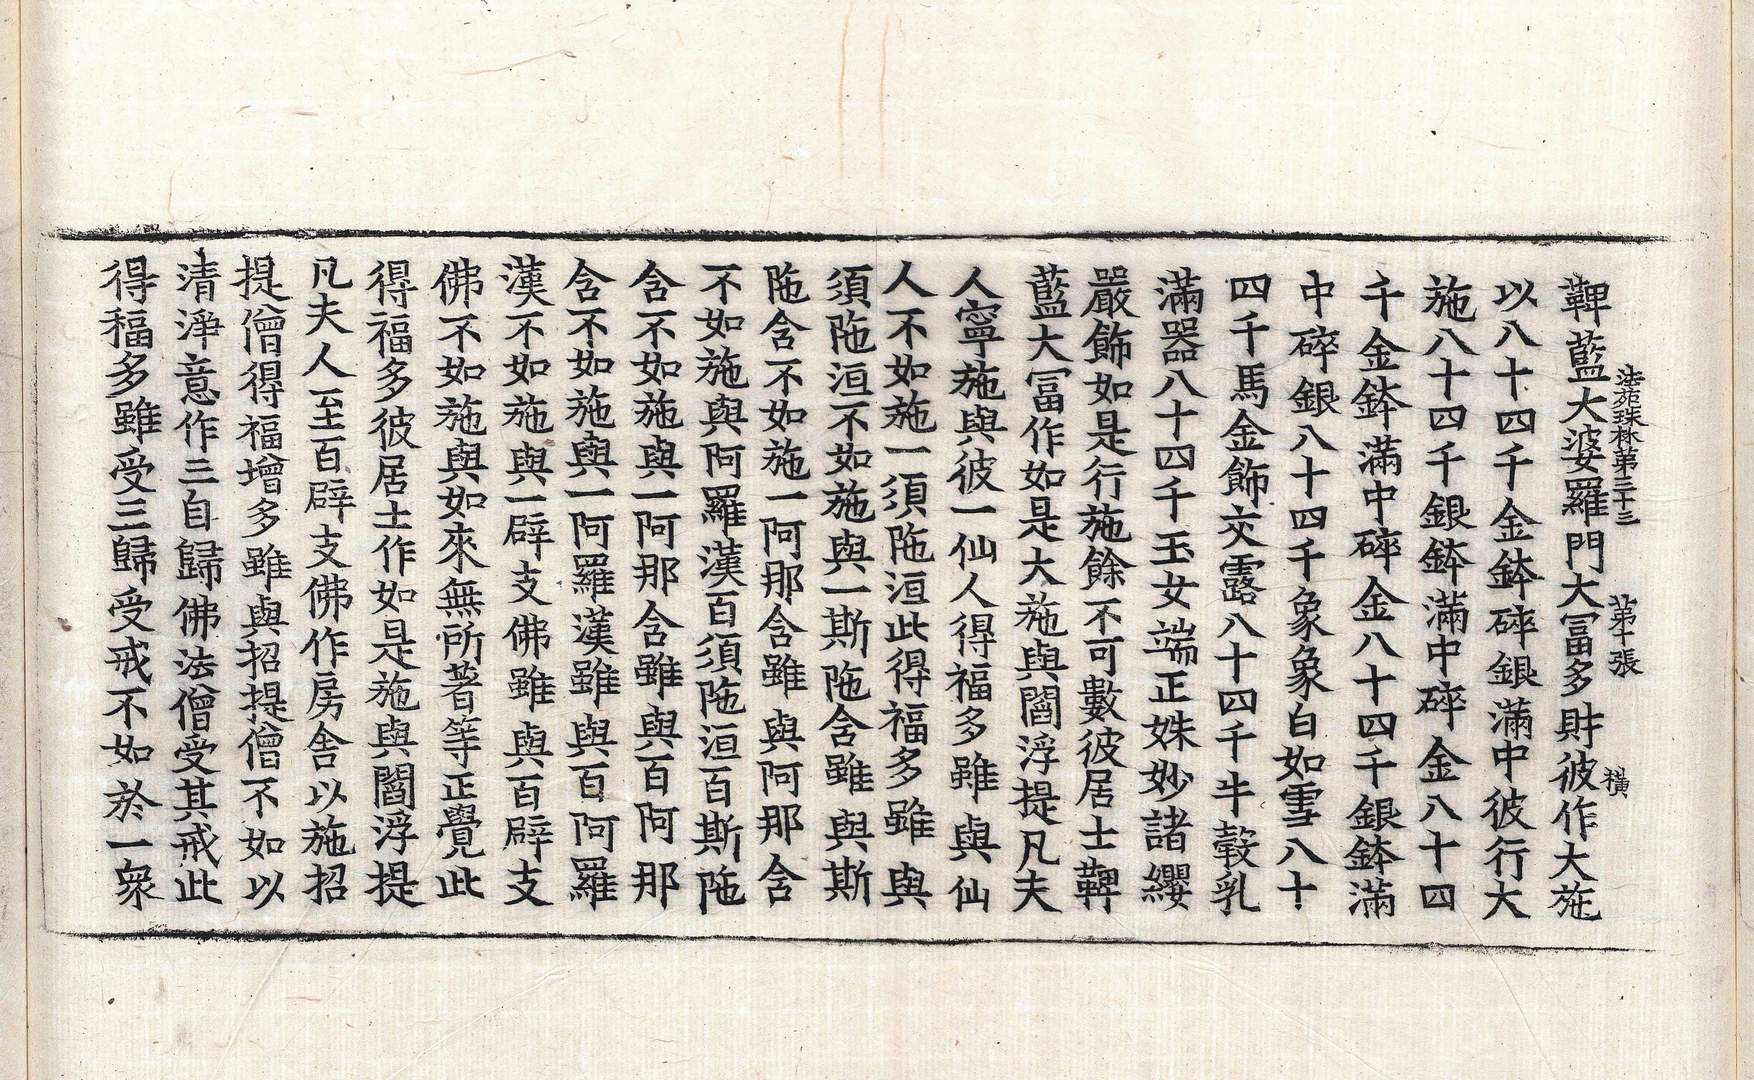 法苑珠林第三十三 第十張 橫
鞞藍大婆羅門大冨多財彼作大施
以八十四千金鉢碎銀滿中彼行大
施八十四千銀鉢滿中碎金八十四
千金鉢滿中碎金八十四千銀鉢滿
中碎銀八十四千象象白如雪八十
四千馬金飾交露八十四千牛㲉乳
滿器八十四千玉女端正姝妙諸纓
嚴飾如是行施餘不可數彼居士鞞
藍大冨作如是大施與閻浮提凡夫
人寧施與彼一仙人得福多雖與仙
人不如施一須陁洹此得福多雖與
須陁洹不如施與一斯陁含雖與斯
陁含不如施一阿那含雖與阿那含
不如施與阿羅漢百須陁洹百斯陁
含不如施與一阿那含雖與百阿那
含不如施與一阿羅漢雖與百阿羅
漢不如施與一辟支佛雖與百辟支
佛不如施與如來無所著等正覺此
得福多彼居士作如是施與閻浮提
凡夫人至百辟支佛作房舍以施招
提僧得福增多雖與招提僧不如以
清淨意作三自歸佛法僧受其戒此
得福多雖受三歸受戒不如於一衆